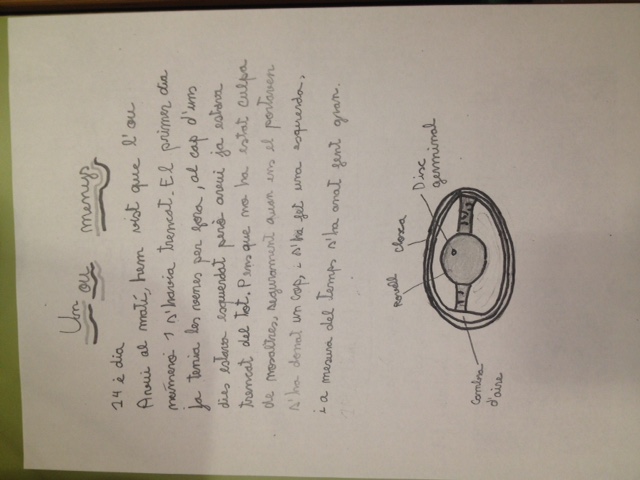 Un ou menys
14 è dia
Avui al matí, hem vist que l'ou
número 1 s'havia trencat. El primer dia
ja tenia les venes per fora, al cap d'uns
dies estava esquerdat però avui ja estava
trencat del tot. Pens que no ha estat culpa
de nosaltres, segurament quan ens el portaven
s'ha donat un cop, i s'ha fet una esquerda,
i a mesura del temps s'ha anat fent gran.
Rovell
Closca
Disc
germinal
Cambra
d'aire